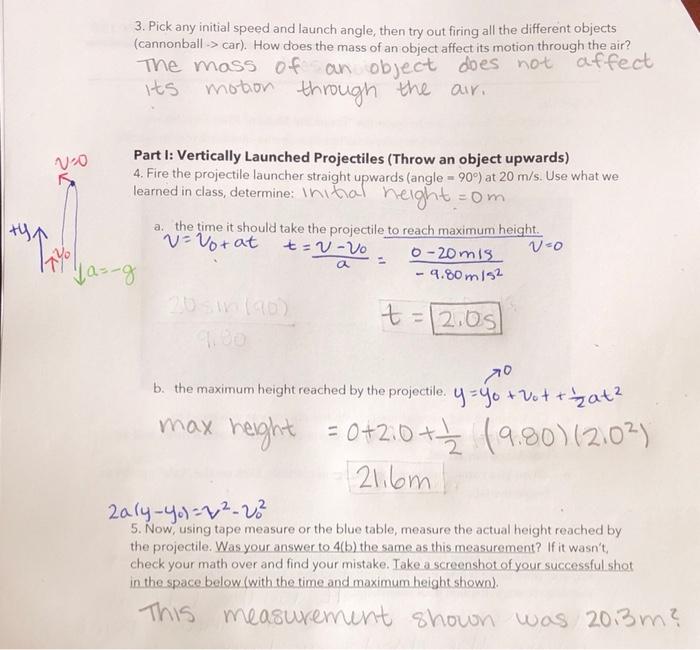 3. Pick any initial speed and launch angle, then try out firing all the different objects
(cannonball -> car). How does the mass of an object affect its motion through the air?
The mass of an object does not affect
its motion through the air.
Part I: Vertically Launched Projectiles (Throw an object upwards)
4. Fire the projectile launcher straight upwards (angle = 90º) at 20 m/s. Use what we
learned in class, determine: Initial height = 0m
v=0
+y
v₀
a=-g
a. the time it should take the projectile to reach maximum height.
v = v₀ + at t = v - v₀ / a = 0 - 20m/s / - 9.80m/s² v=0
20 sin (90) / 9.80
t = 2.0s
b. the maximum height reached by the projectile. y = y₀ + v₀t + ½at²
0
max height = 0+2.0+½ (9.80)(2.0²)
21.6m
2a(y-y₀) = v² - v₀²
5. Now, using tape measure or the blue table, measure the actual height reached by
the projectile. Was your answer to 4(b) the same as this measurement? If it wasn't,
check your math over and find your mistake. Take a screenshot of your successful shot
in the space below (with the time and maximum height shown).
This measurement shown was 20.3m?